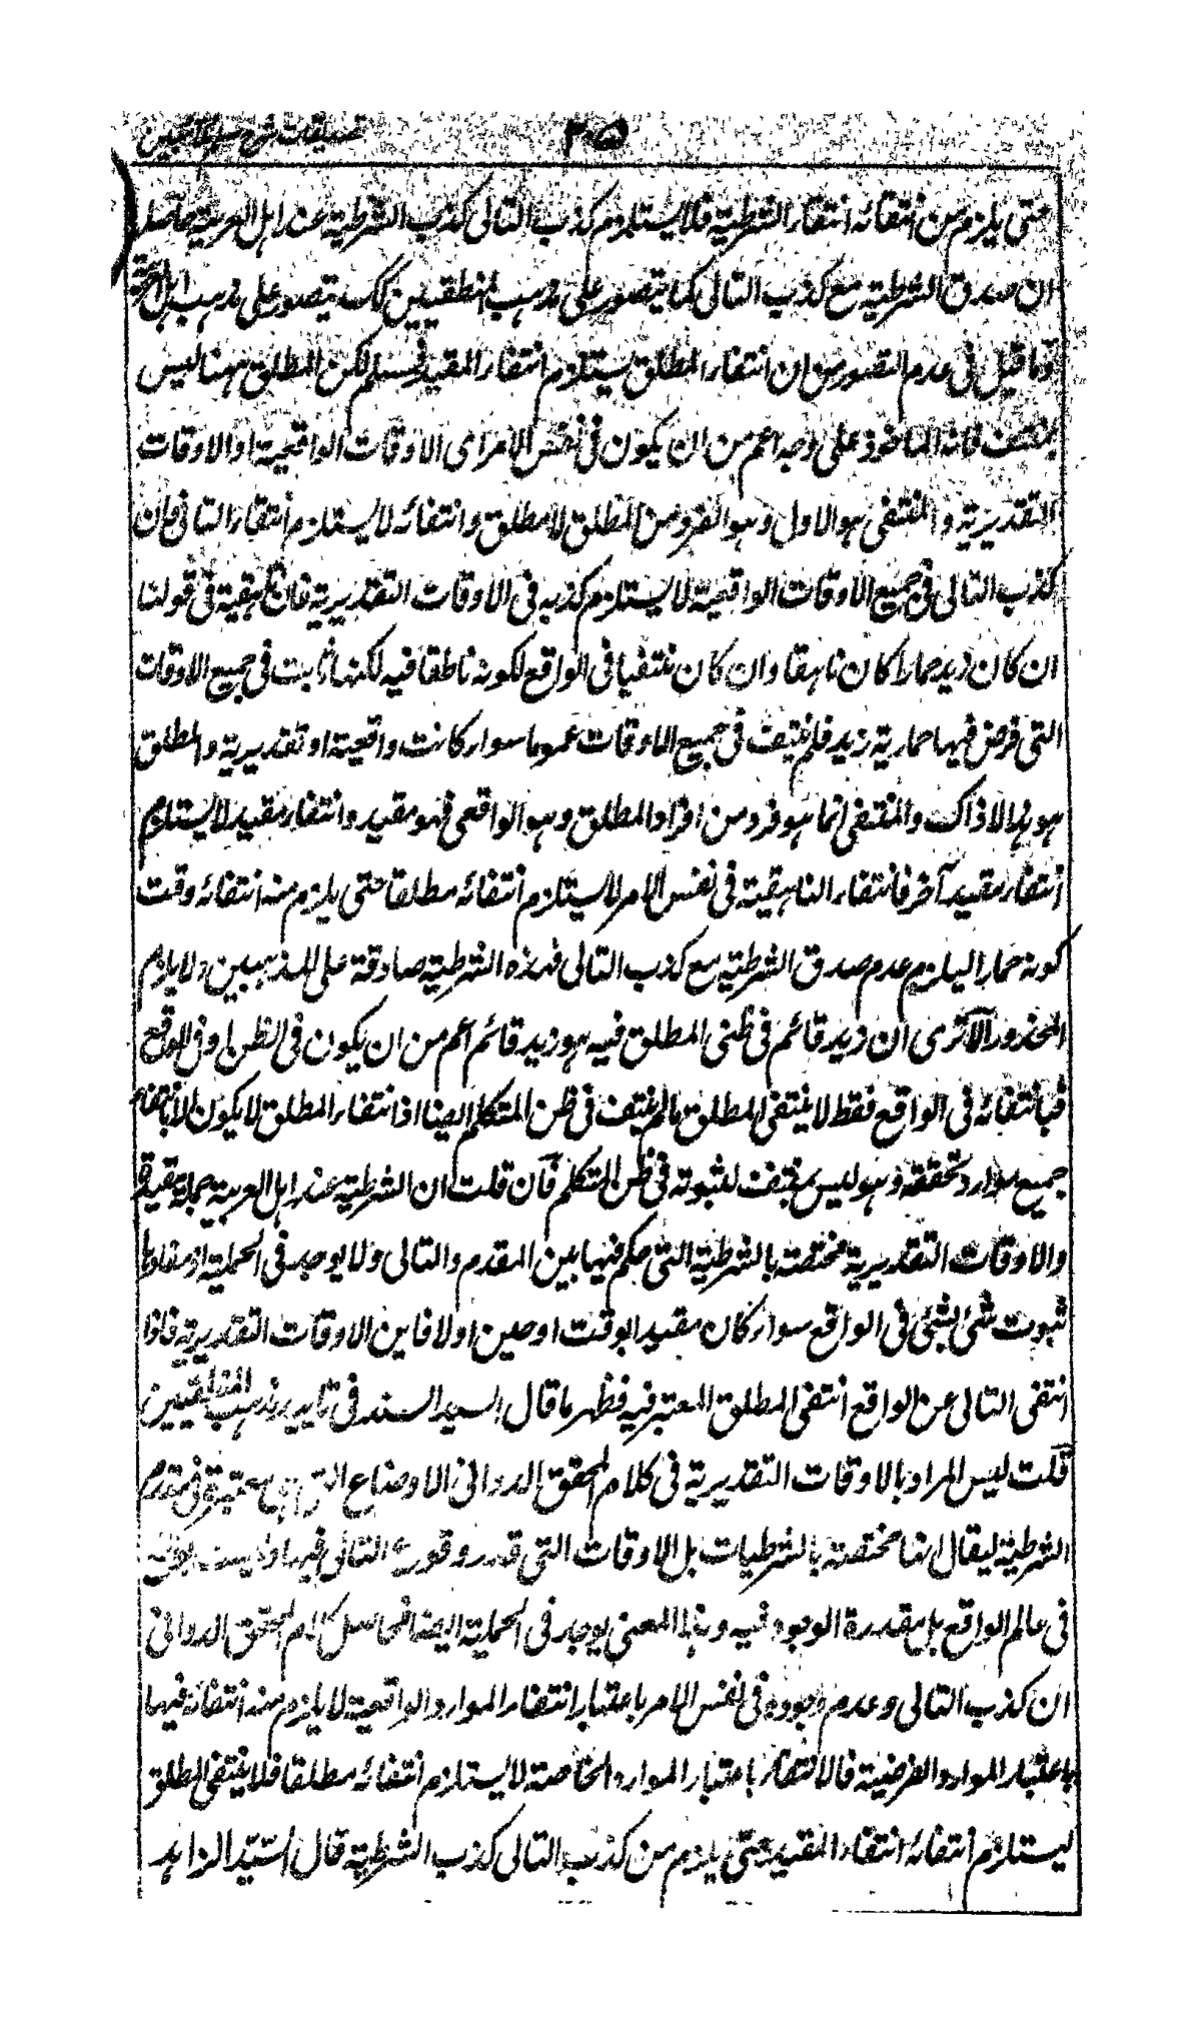 ٢٥
حتى يلزم من انتفائه انتفاء الشرطية فلا يستلزم كذب التالى كذب الشرطية عند اهل العربية
ان صدق الشرطية مع كذب التالى كما يتصور على مذهب المنطقيين كك يتصور على مذهب اهل العربية
وما قيل فى عدم التصور من ان انتفاء المطلق يستلزم انتفاء المقيد فمسلم لكن المطلق ههنا ليس
بمنتف فانه الماخوذ على وجه اعم من ان يكون فى نفس الامر اى الاوقات الواقعية او الاوقات
التقديرية والمنتفى هو الاول وهو الفرد من المطلق لا مطلق وانتفائه لا يستلزم انتفاء التالى فان
كذب التالى فى جميع الاوقات الواقعية لا يستلزم كذبه فى الاوقات التقديرية فان ناهقية فى قولنا
ان كان زيد حمارا كان ناهقا وان كان منتفيا فى الواقع لكونه ناطقا فيه لكنها ثابت فى جميع الاوقات
التى فرض فيها حمارية زيد فلم ينتف فى جميع الاوقات عموما سواء كانت واقعية او تقديرية والمطلق
هو هذا لا ذاك والمنتفى انما هو فرد من افراد المطلق وهو الواقعى فهو مقيد وانتفاء مقيد لا يستلزم
انتفاء مقيد آخر فانتفاء الناهقية فى نفس الامر لا يستلزم انتفائه مطلقا حتى يلزم منه انتفائه وقت
كونه حمارا ليلزم عدم صدق الشرطية مع كذب التالى فهذه الشرطية صادقة على المذهبين ولا يلزم
المحذور الا ترى ان زيد قائم فى ظنى المطلق فيه هو زيد قائم اعم من ان يكون فى الظن او فى الواقع
فبانتفائه فى الواقع فقط لا ينتفى المطلق ما لم ينتف فى ظن المتكلم ايضا اذ انتفاء المطلق لا يكون الا بانتفاء
جميع موارد تحققه وهو ليس بمنتف لثبوته فى ظن المتكلم فان قلت ان الشرطية عند اهل العربية حملية مقيدة
والاوقات التقديرية مختصة بالشرطية التى حكم فيها بين المقدم والتالى ولا يوجد فى الحملية اذ مفادها
ثبوت شئ لشئ فى الواقع سواء كان مقيدا بوقت او حين اولا فاين الاوقات التقديرية فاذا
انتفى التالى عن الواقع انتفى المطلق المعتبر فيه فظهر ما قال السيد السند فى تاييد مذهب المنطقيين
قلت ليس المراد بالاوقات التقديرية فى كلام المحقق الدوانى الاوضاع التى هى معتبرة فى مقدم
الشرطية ليقال انها مختصة بالشرطيات بل الاوقات التى قدر وقوع التالى فيها وليست
فى عالم الواقع بل مقدرة الوجود فيه وهذا المعنى يوجد فى الحملية ايضا فحاصل كلام المحقق الدوانى
ان كذب التالى وعدم وجوده فى نفس الامر باعتبار انتفاء الموارد الواقعية لا يلزم منه انتفائه فيها
باعتبار الموارد الفرضية فالانتفاء باعتبار الموارد الخاصة لا يستلزم انتفائه مطلقا فلا ينتفى المطلق
ليستلزم انتفائه انتفاء المقيد حتى يلزم من كذب التالى كذب الشرطية قال السيد الزاهد